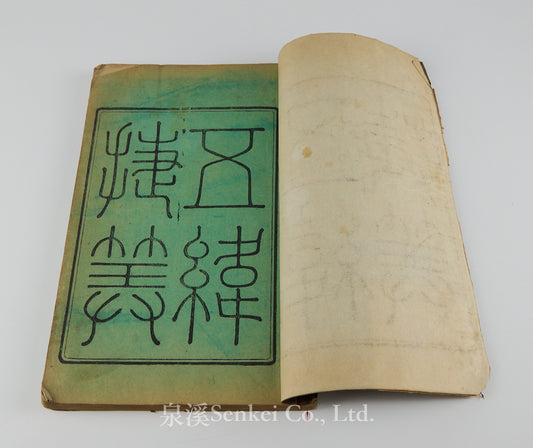 五緯
捷筭
泉溪Senkei Co., Ltd.